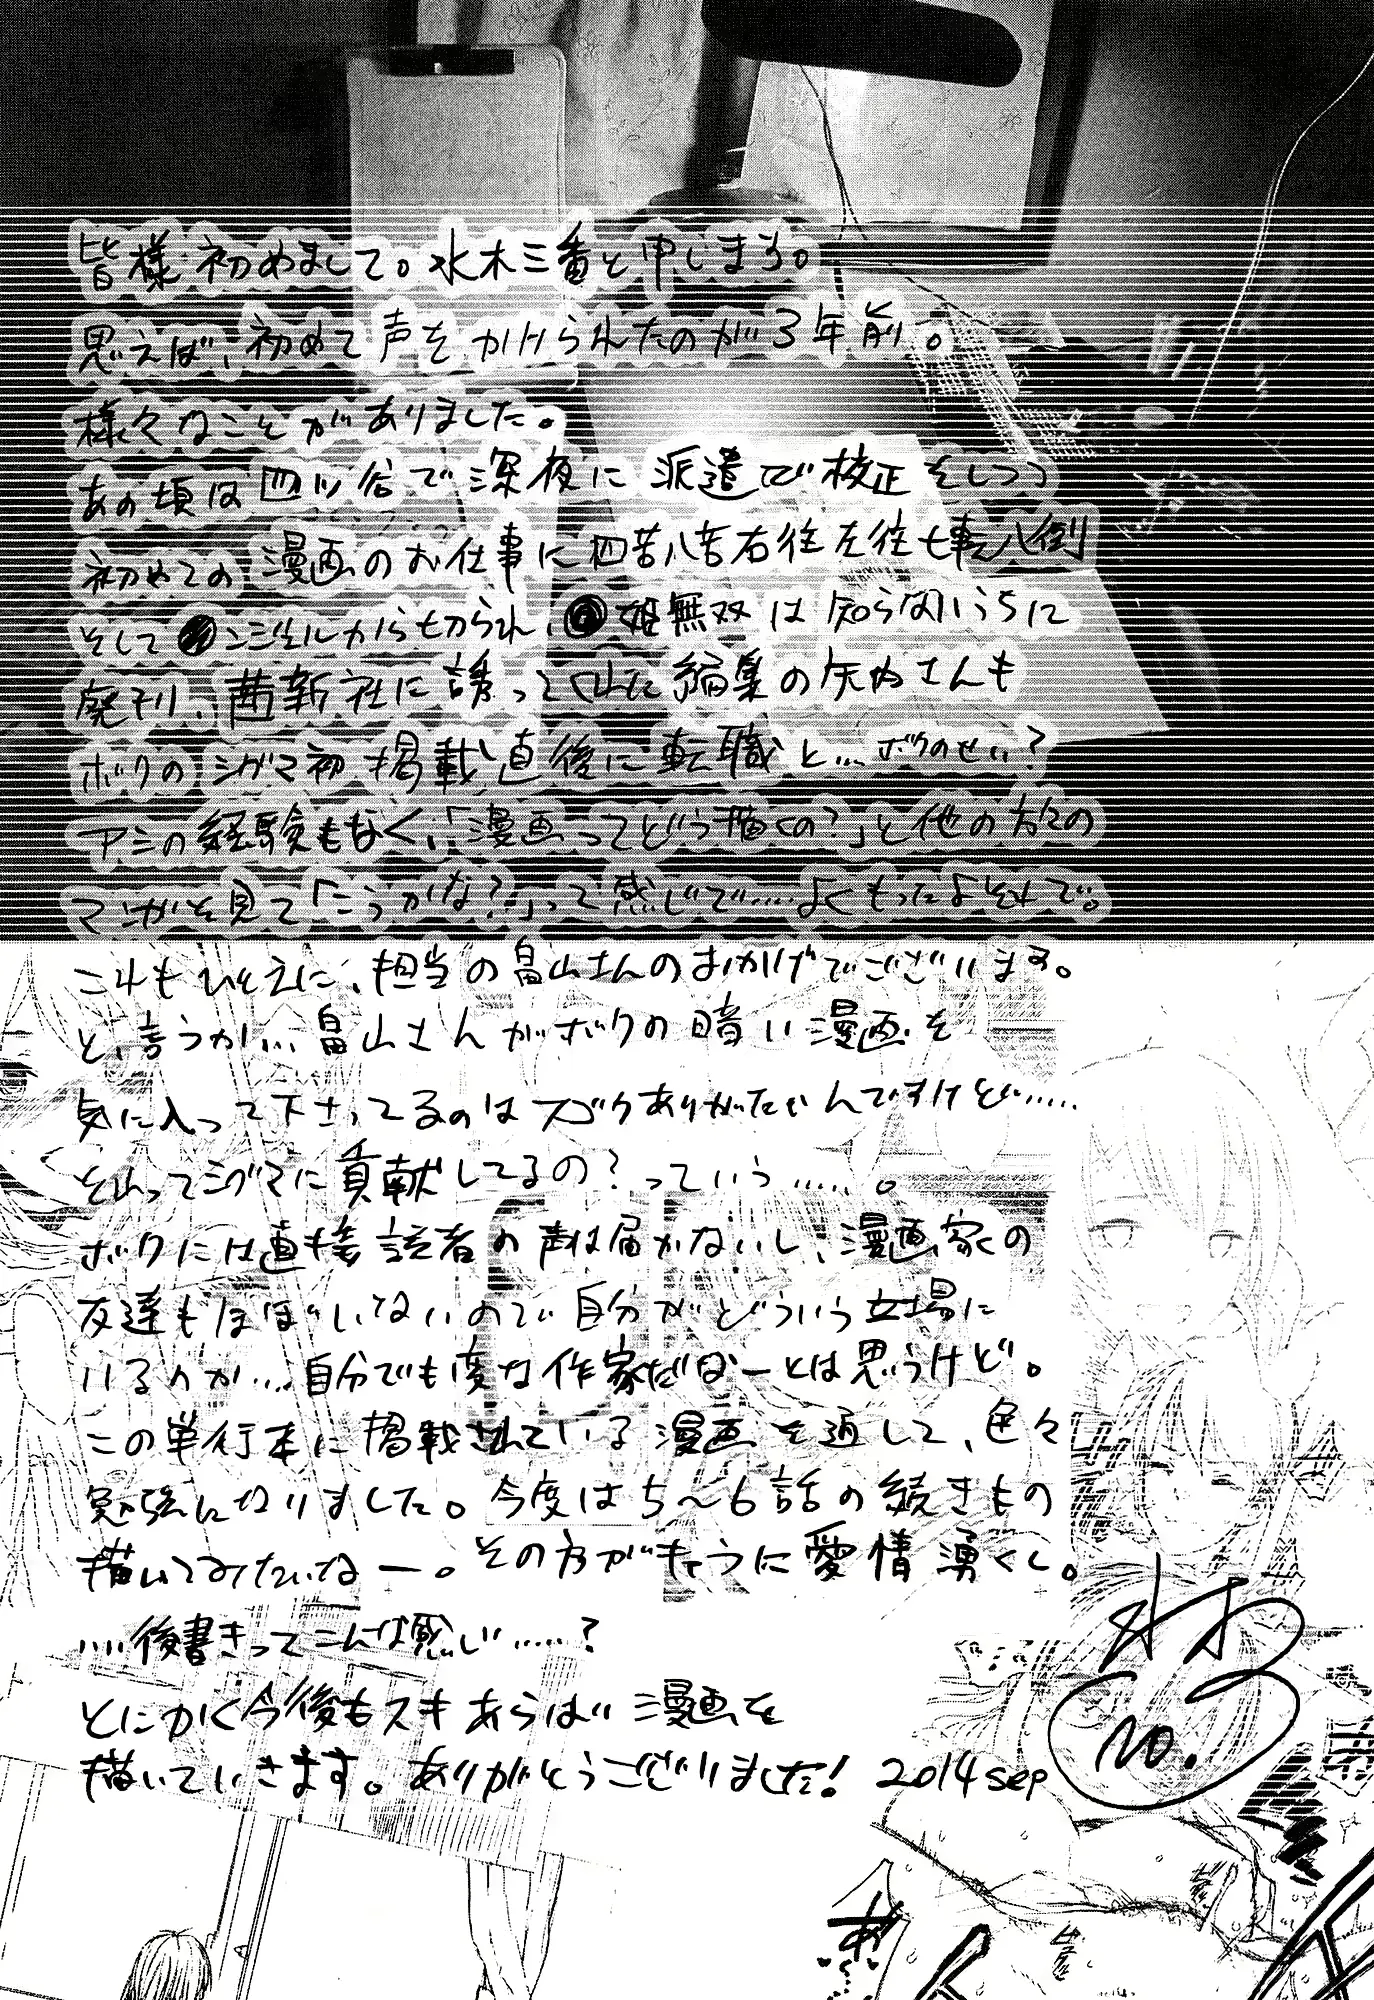 皆様初めまして。水木三番と申します。
思えば、初めて声をかけられたのが3年前。
様々なことがありました。
あの頃は四ツ谷で深夜に派遣で校正をしつつ
初めての漫画のお仕事に四苦八苦右往左往七転八倒
そして●ンジェルから切られ、●姫無双は知らないうちに
廃刊、茜新社に誘ってくれた編集の矢内さんも
ボクのシグマ初掲載直後に転職と…ボクのせい?
アシの経験もなく、「漫画ってどう描くの?」と他の方々の
マンガを見て「こうかな?」って感じで……よくもったよそれで。
これもひとえに、担当の畠山さんのおかげでございます。
と、言うか…畠山さんがボクの暗い漫画を
気に入って下さってるのはスゴクありがたいんですけど……
それってシグマに貢献してるの?っていう……。
ボクには直接読者の声は届かないし、漫画家の
友達もほぼいないので自分がどういう立場に
いるのか…自分でも変な作家だなーとは思うけど。
この単行本に掲載されている漫画を通して、色々
勉強になりました。今度は5〜6話の続きもの
描いてみたいなー。その方がキャラに愛情湧くし。
…後書きってこんな感じ……?
とにかく今後もスキあらば漫画を
描いていきます。ありがとうございました! 2014 sep
水木
NO.
あ